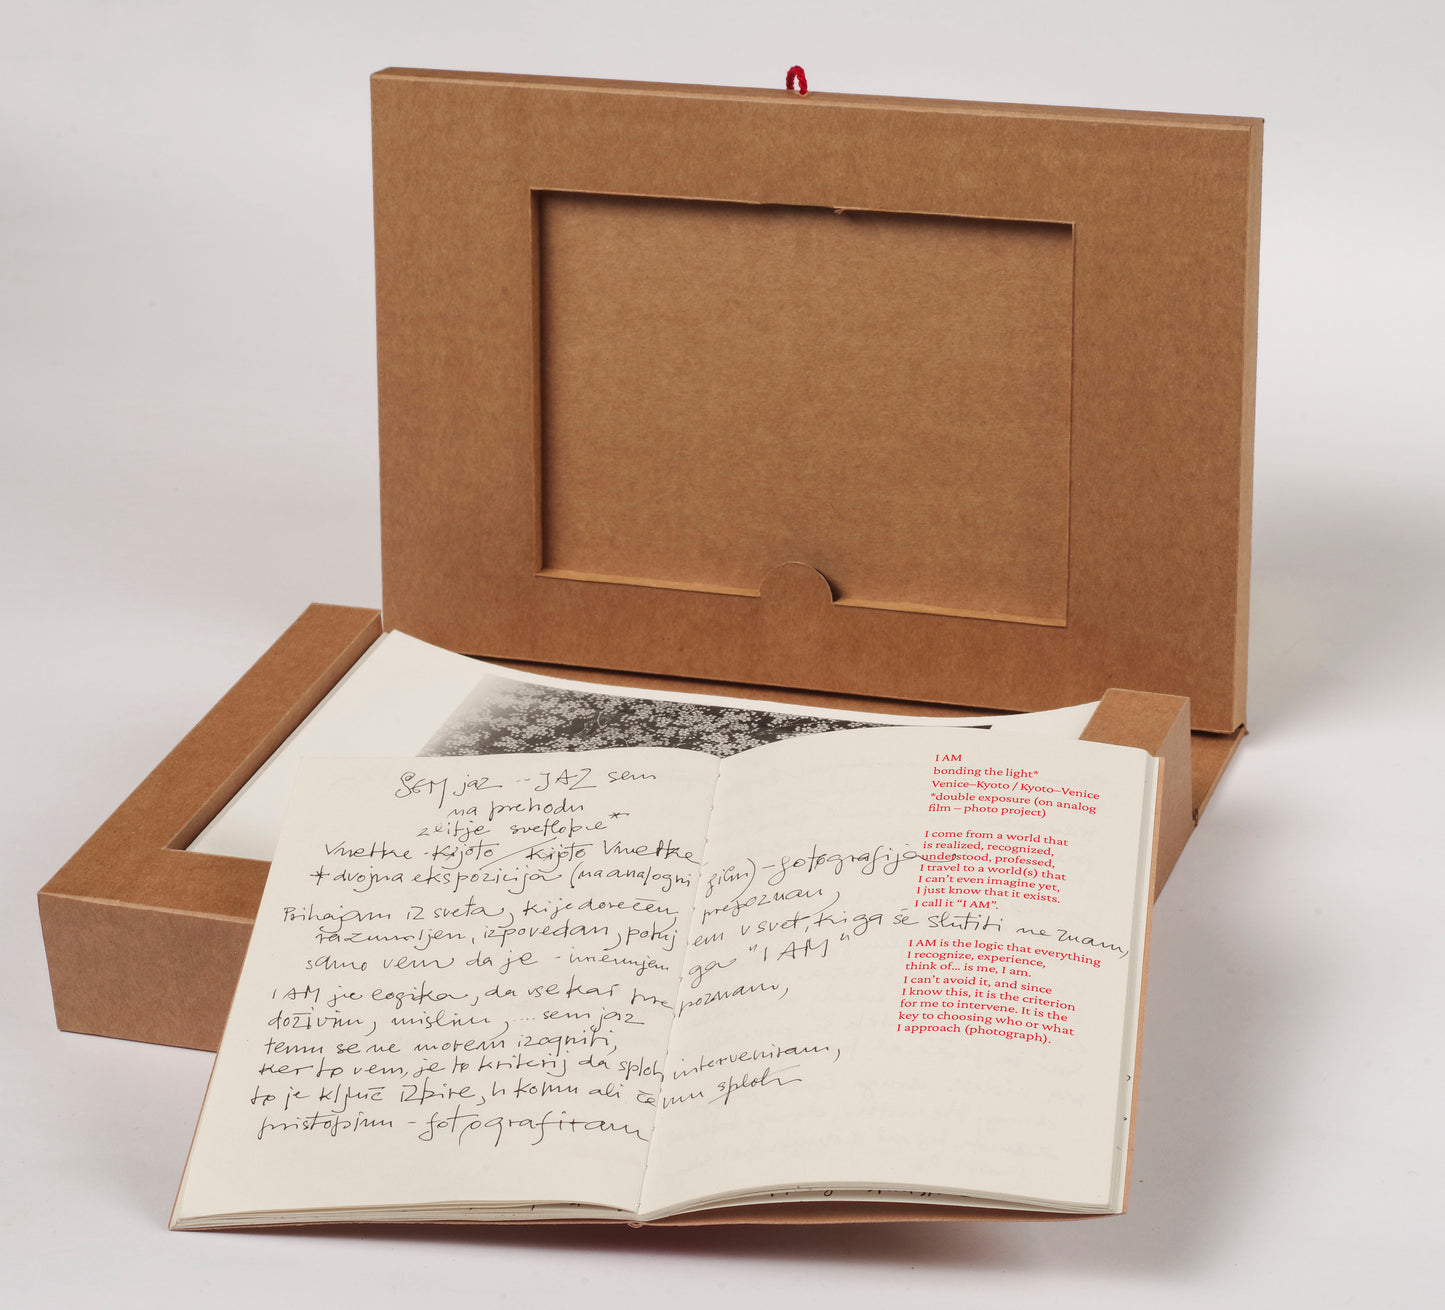 SEM jaz -- JAZ sem
na prehodu
svetlobe*
Vnetke - Kijoto / Kijoto Vnetke
* dvojna ekspozicija (na analogni film) - fotografija
Prihajam iz sveta, ki je dorečen, prepoznan,
razumljen, izpovedan, potujem v svet, ki ga še slutiti ne znam,
samo vem da je - imenujem ga "I AM"
I AM je logika, da vse kar prepoznam,
doživim, mislim, ... sem jaz
temu se ne morem izogniti,
ker to vem, je to kriterij da sploh interveniram,
to je ključ izbire, h komu ali čemu sploh
pristopim - fotografiram
I AM
bonding the light*
Venice–Kyoto / Kyoto–Venice
*double exposure (on analog
film – photo project)
I come from a world that
is realized, recognized,
understood, professed,
I travel to a world(s) that
I can't even imagine yet,
I just know that it exists.
I call it “I AM”.
I AM is the logic that everything
I recognize, experience,
think of... is me, I am.
I can't avoid it, and since
I know this, it is the criterion
for me to intervene. It is the
key to choosing who or what
I approach (photograph).